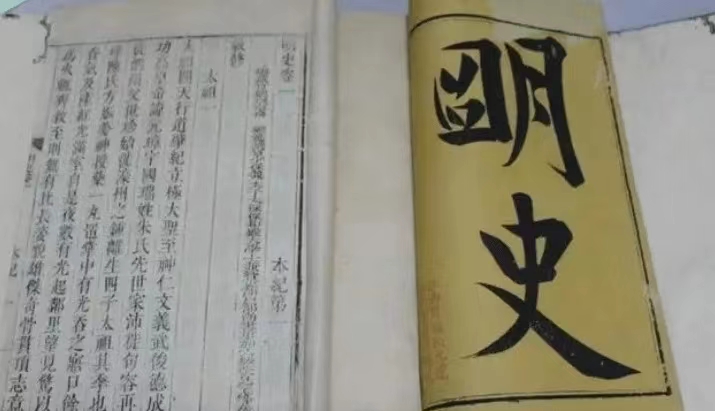 明史
明史卷一
本紀第
敕修
太祖一
太祖開天行道肇紀立極大聖至神仁文義武俊德成
功高皇帝諱元璋字國瑞姓朱氏先世家沛徙句容再
徙泗州父世珍始徙濠州之鍾離生四子太祖其季也
母陳氏方娠夢神授藥一丸置掌中有光吞之寤口餘
香氣及產紅光滿室自是夜數有光起鄰里望見驚以
為火輒奔救至則無有比長姿貌雄傑奇骨貫頂志意
本紀